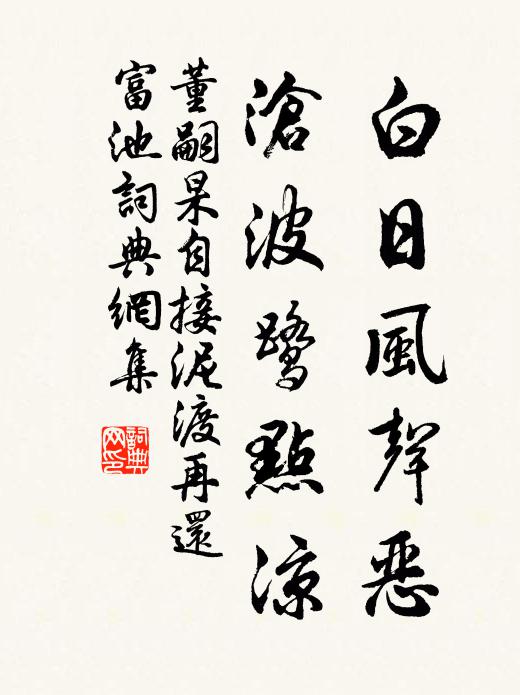 白日風聲惡
滄波鷺點涼
董嗣杲自接泥渡再還
富池詞典網集
詞典網印